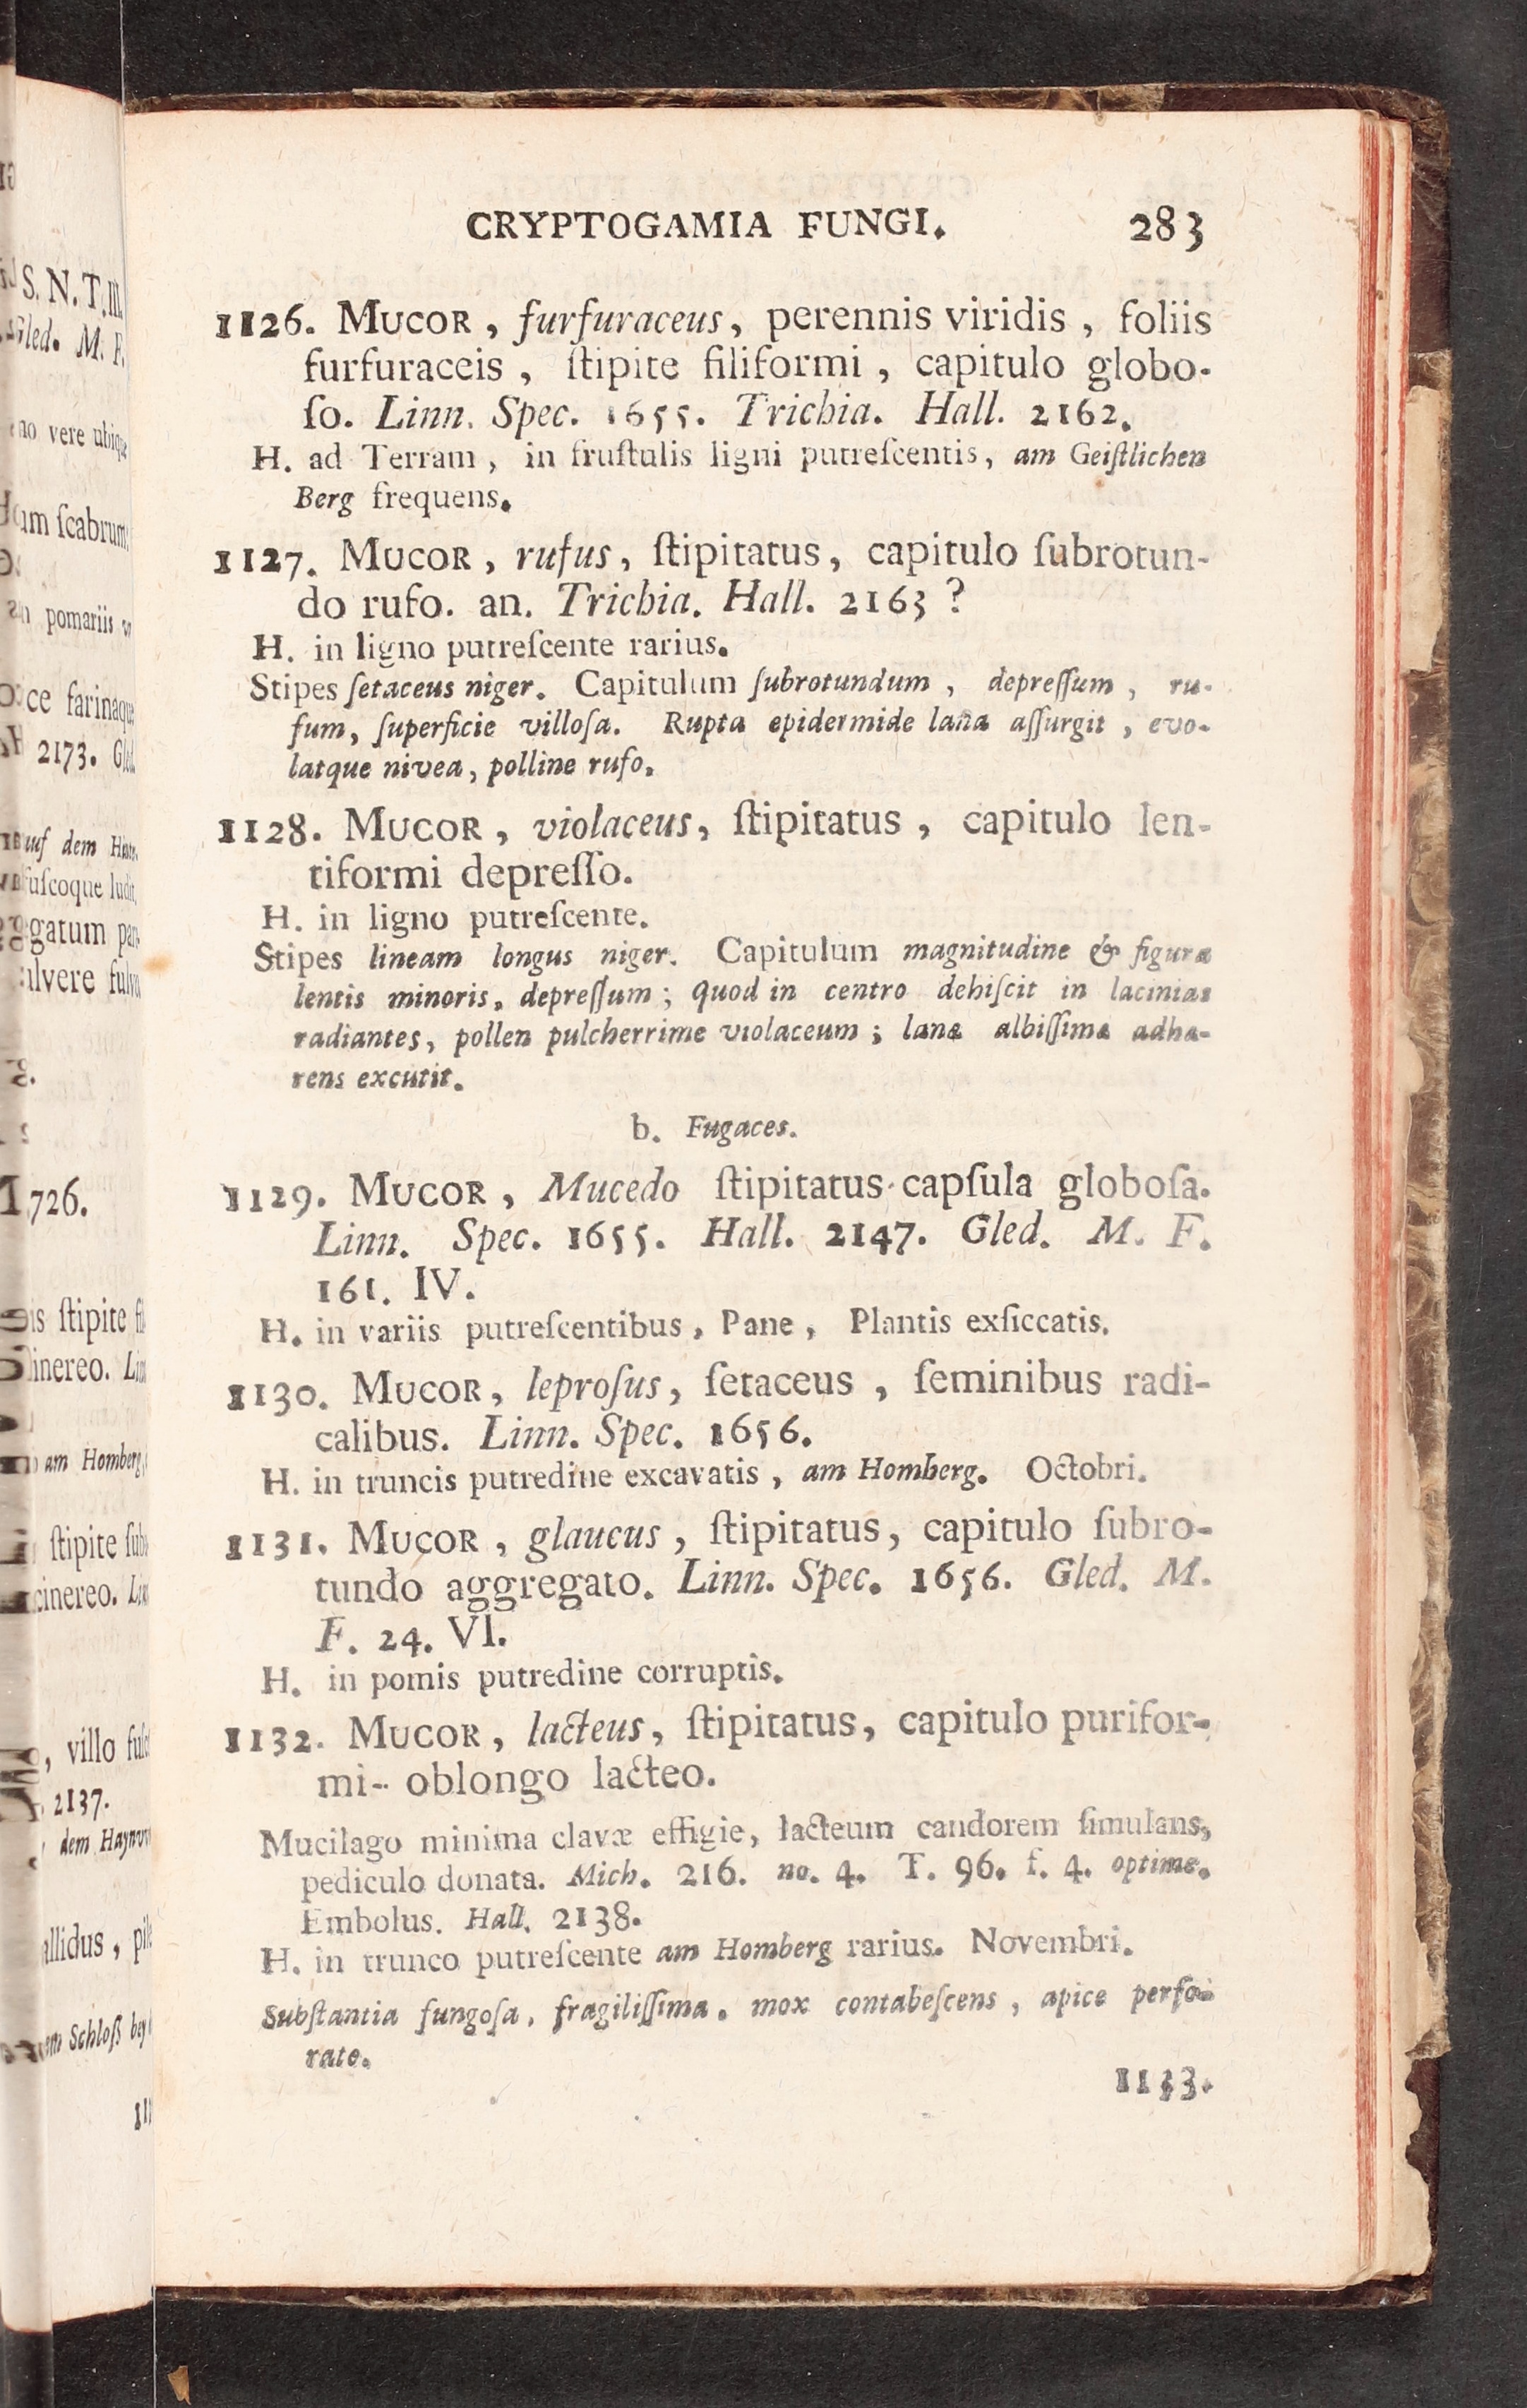 CRYPTOGAMIA FUNGI. 283
1126. MUCOR, furfuraceus, perennis viridis, foliis
furfuraceis, ſtipite filiformi, capitulo globo-
ſo. Linn. Spec. 1655. Trichia. Hall. 2162.
H. ad Terram, in fruſtulis ligni putreſcentis, am Geiſtlichen
Berg frequens.
1127. MUCOR, rufus, ſtipitatus, capitulo ſubrotun-
do rufo. an. Trichia. Hall. 2163 ?
H. in ligno putreſcente rarius.
Stipes ſetaceus niger. Capitulum ſubrotundum, depreſſum, ru-
fum, ſuperficie villoſa. Rupta epidermide lana aſſurgit, evo-
latque nivea, polline rufo.
1128. MUCOR, violaceus, ſtipitatus, capitulo len-
tiformi depreſſo.
H. in ligno putreſcente.
Stipes lineam longus niger. Capitulum magnitudine & figura
lentis minoris, depreſſum; quod in centro dehiſcit in lacinias
radiantes, pollen pulcherrime violaceum; lanæ albiſſimæ adhæ-
rens excutit.
b. Fugaces.
1129. MUCOR, Mucedo ſtipitatus capſula globoſa.
Linn. Spec. 1655. Hall. 2147. Gled. M. F.
161. IV.
H. in variis putreſcentibus, Pane, Plantis exſiccatis.
1130. MUCOR, leproſus, ſetaceus, ſeminibus radi-
calibus. Linn. Spec. 1656.
H. in truncis putredine excavatis, am Homberg. Octobri.
1131. MUCOR, glaucus, ſtipitatus, capitulo ſubro-
tundo aggregato. Linn. Spec. 1656. Gled. M.
F. 24. VI.
H. in pomis putredine corruptis.
1132. MUCOR, lacteus, ſtipitatus, capitulo purifor-
mi-oblongo lacteo.
Mucilago minima clavæ effigie, lacteum candorem ſimulans,
pediculo donata. Mich. 216. no. 4. T. 96. f. 4. optime.
Embolus. Hall. 2138.
H. in trunco putreſcente am Homberg rarius. Novembri.
Subſtantia fungoſa, fragiliſſima, mox contabeſcens, apice perfo-
rato.
1133.
S. N. T. III.
Gled. M. F.
vere ubique
ſcabrum
pomariis
2173.
auf dem
fuſcoque
1726.
ſtipite
cinereo.
am Homberg
ſtipite
cinereo.
villo
2137.
dem
Schloſs bey